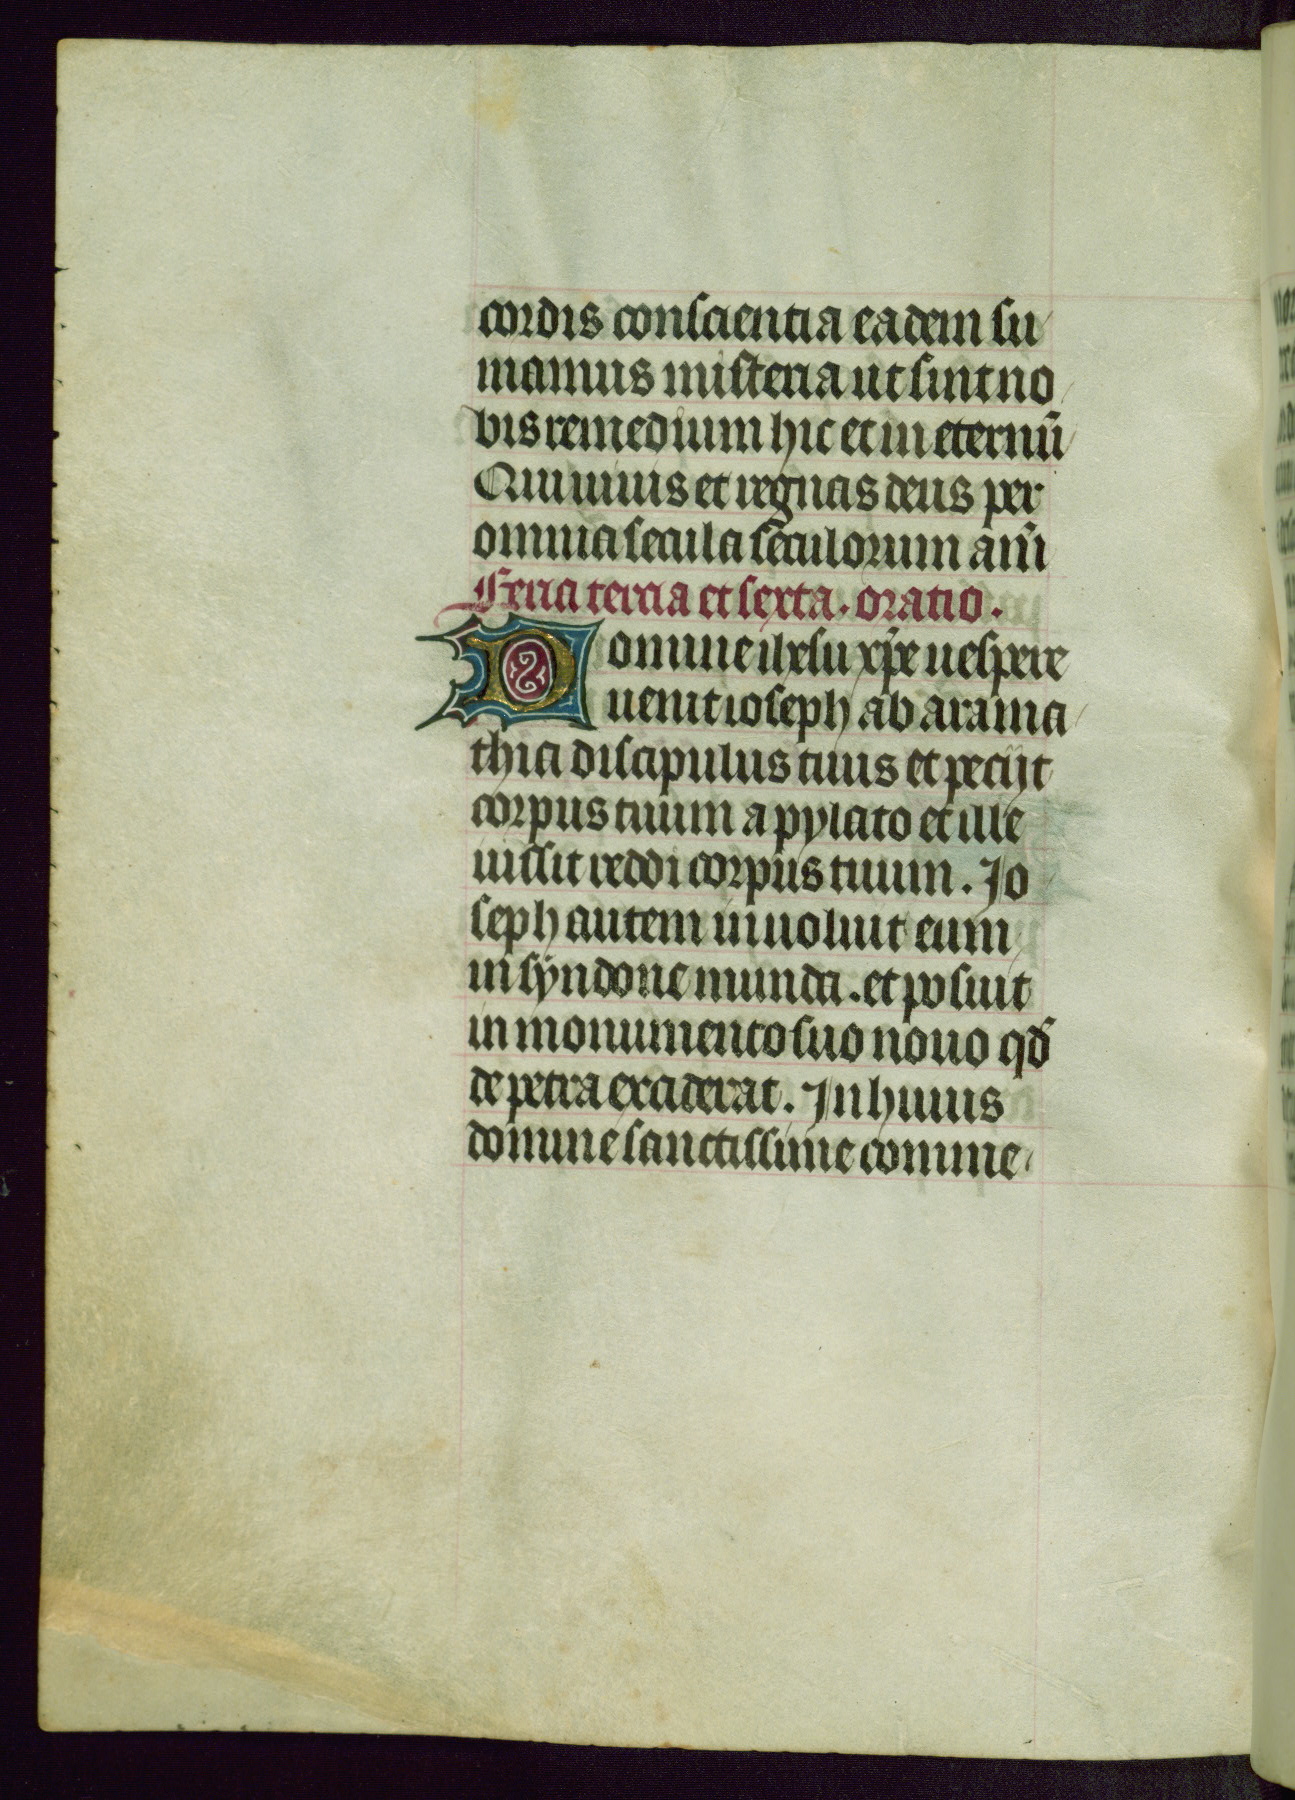 cordis conscientia eadem su
mamus misteria ut sint no
bis remedium hic et in eternū
Qui uiuis et regnas deus per
omnia secula seculorum am̄
Feria tercia et sexta. oratio.
Domine ihesu xp̄e uespere
uenit ioseph ab arama
thia discipulus tuus et peciit
corpus tuum a pylato et ille
iussit reddi corpus tuum. Jo
seph autem inuoluit eum
in syndone munda. et posuit
in monumento suo nouo qd̄
de petra exciderat. In huius
domine sanctissime comme